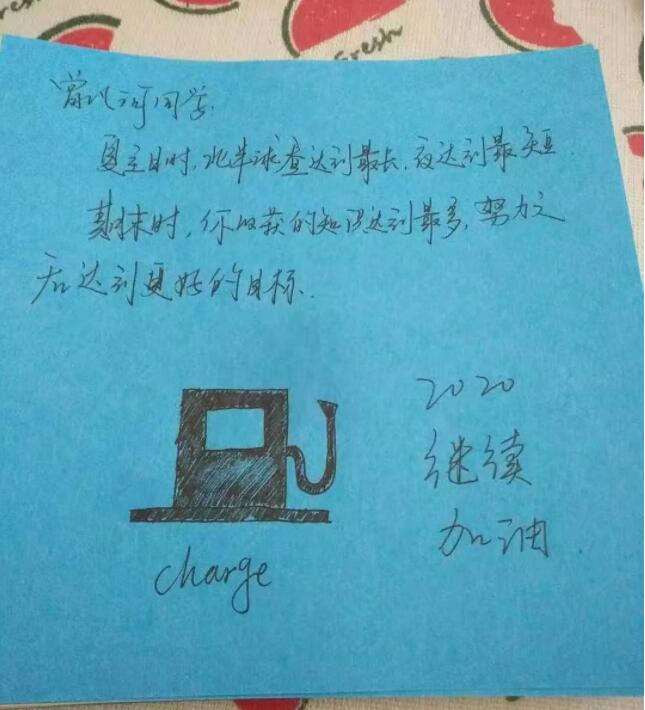 Fresh
Fresh
同学.
夏至日时,北半球昼达到最长,夜达到最短.
期末时,你收获的知识达到最多,努力之
后达到更好的目标.
2020
继续
加油
charge